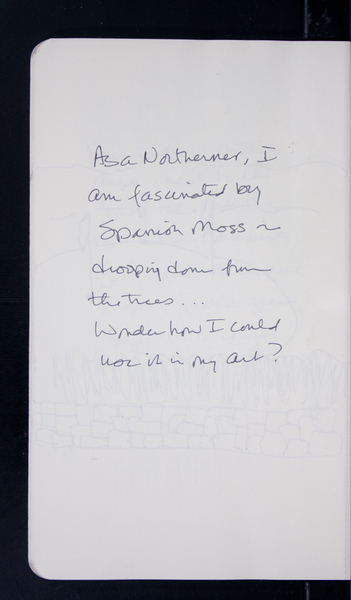 As a Northerner, I
am fascinated by
Spanish Moss ~
drooping down from
the trees...
Wonder how I could
use it in my art?